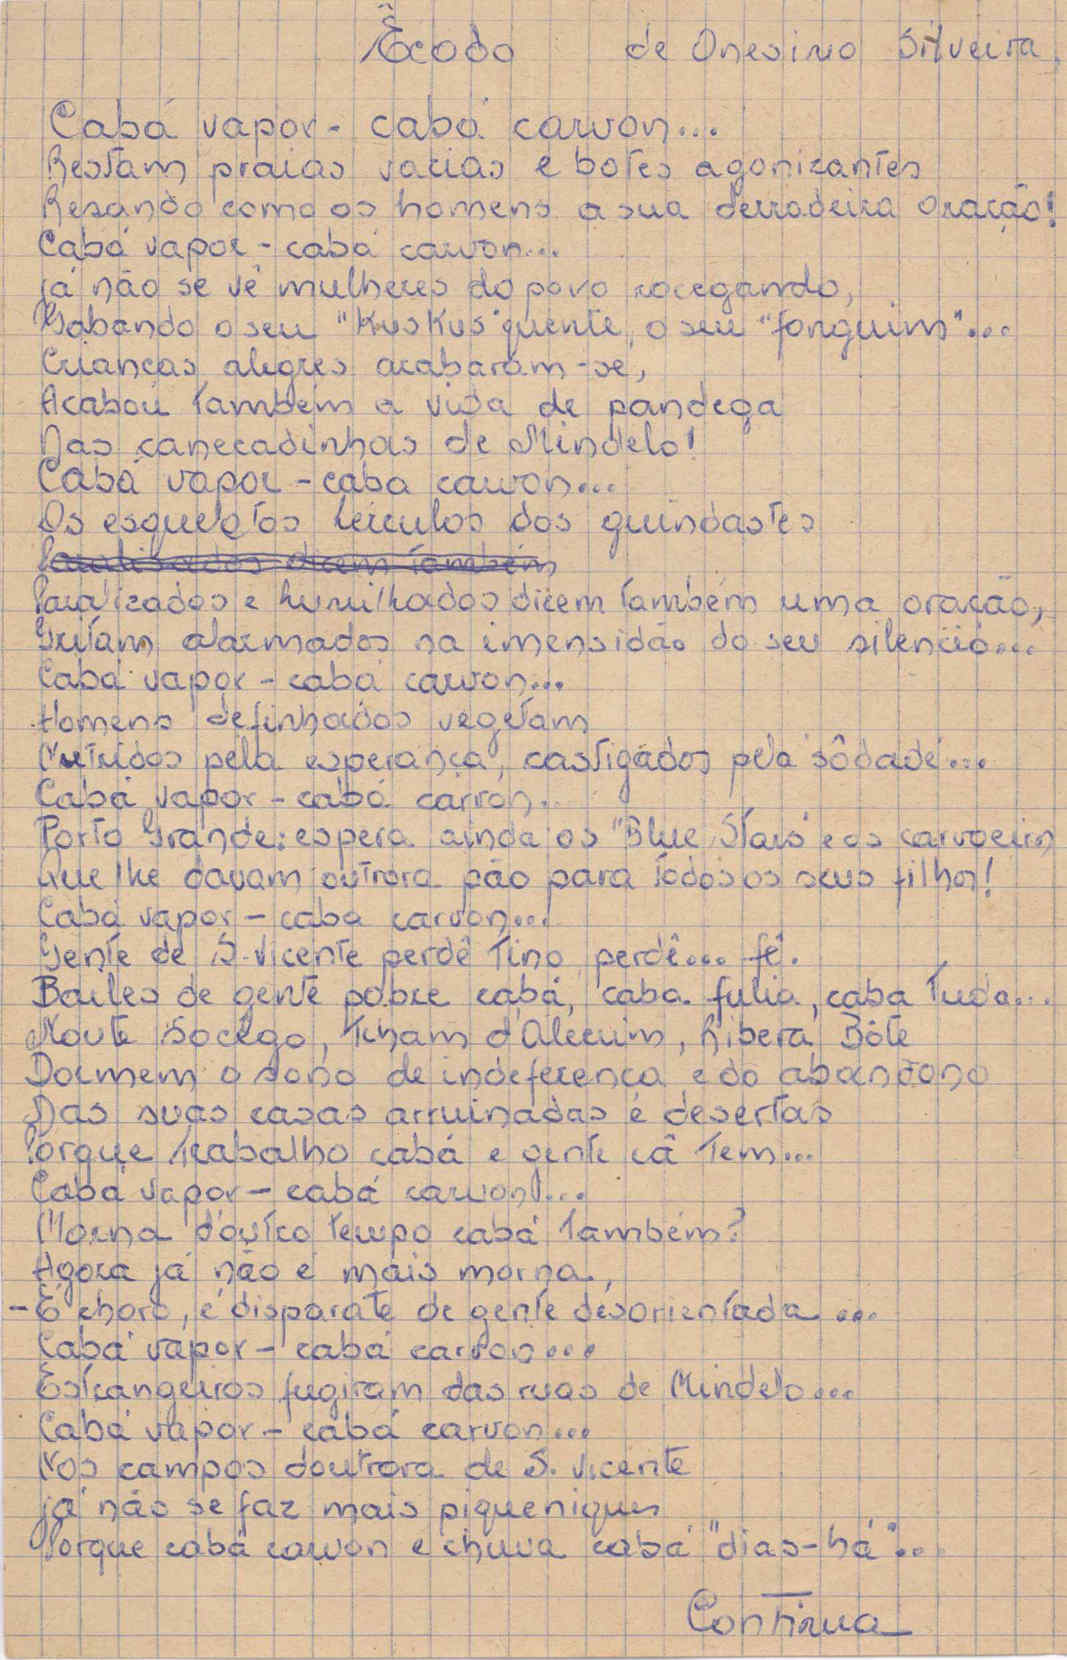 Êxodo de Onesimo Silveira,
Cabá vapor - cabá carvon...
Restam praias vazias e botes agonizantes
Rezando como os homens a sua derradeira oração!
Cabá vapor - cabá carvon...
já não se vê mulheres do povo rocegando,
Gabando o seu "KusKus" quente, o seu "fonguim"...
Crianças alegres acabaram-se,
Acabou também a vida de pandega
Das canecadinhas de Mindelo!
Cabá vapor - caba carvon...
Os esqueletos hérculos dos guindastes
Paralizados dizem também
Paralizados e humilhados dizem também uma oração,
Gritam alarmados na imensidão do seu silencio...
Cabá vapor - cabá carvon...
Homens definhados vegetam
Nutridos pela esperança, castigados pela sôdade...
Cabá vapor - cabá carvon.
Porto Grande: espera ainda os "Blue Stars" e os carvoeiros
Que lhe davam outrora pão para todos os seus filhos!
Cabá vapor - caba carvon...
Gente de S. Vicente perdê tino perdê... fê.
Bailes de gente pobre cabá, caba fulia, caba tudo...
Monte Socêgo, Tcham d'Alecrim, Ribera Bôte
Dormem o sono de indeferença e do abandono
Das suas casas arruinadas e desertas
Porque trabalho cabá e gente câ tem...
Cabá vapor - cabá carvon!...
Morna d'outro tempo cabá também?
Agora já não é mais morna,
- É choro, é disparate de gente desorientada...
Cabá vapor - cabá carvon...
Estrangeiros fugiram das ruas de Mindelo...
Cabá vapor - cabá carvon...
Nos campos doutrora de S. Vicente
já não se faz mais piqueniques
Porque cabá carvon e chuva cabá "dias-há"...
Continua